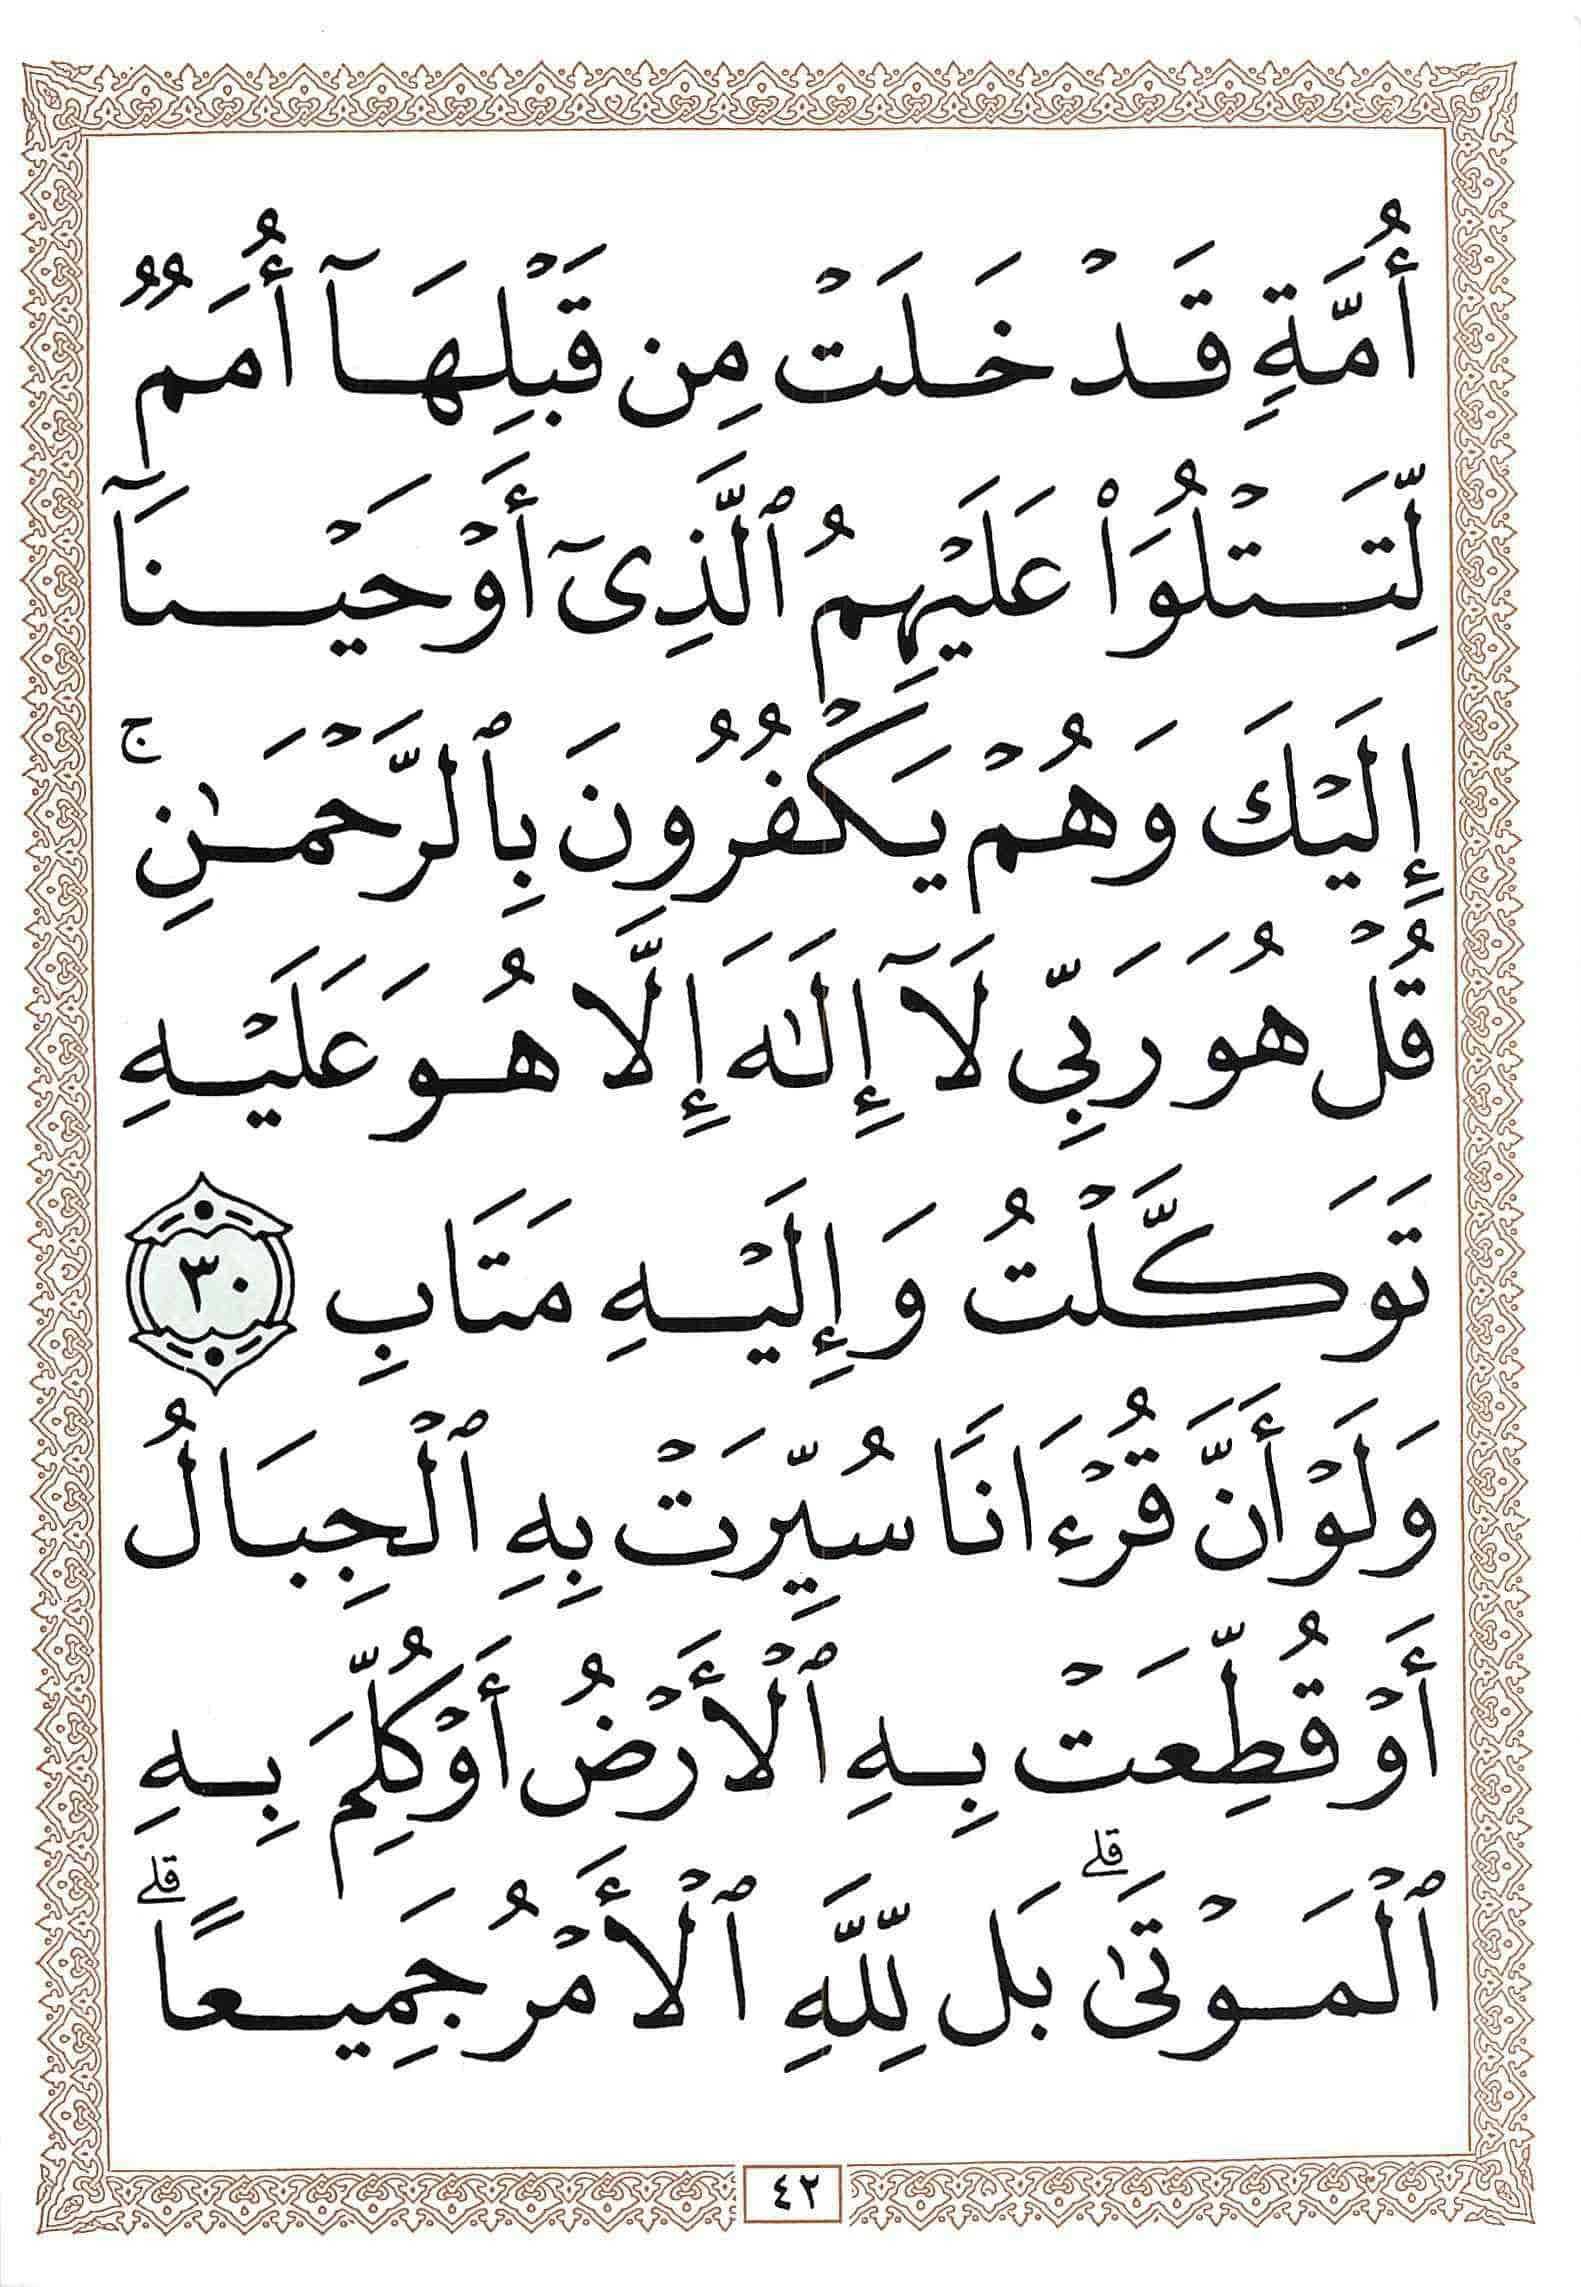 أُمَّةٍ قَدۡ خَلَتۡ مِن قَبۡلِهَآ أُمَمٞ
لِّتَتۡلُوَاْ عَلَيۡهِمُ ٱلَّذِىٓ أَوۡحَيۡنَآ
إِلَيۡكَ وَهُمۡ يَكۡفُرُونَ بِٱلرَّحۡمَٰنِۚ
قُلۡ هُوَ رَبِّى لَآ إِلَٰهَ إِلَّا هُوَ عَلَيۡهِ
تَوَكَّلۡتُ وَإِلَيۡهِ مَتَابِ ٣٠
وَلَوۡ أَنَّ قُرۡءَانٗا سُيِّرَتۡ بِهِ ٱلۡجِبَالُ
أَوۡ قُطِّعَتۡ بِهِ ٱلۡأَرۡضُ أَوۡ كُلِّمَ بِهِ
ٱلۡمَوۡتَىٰۗ بَل لِّلَّهِ ٱلۡأَمۡرُ جَمِيعًاۗ
٤٢